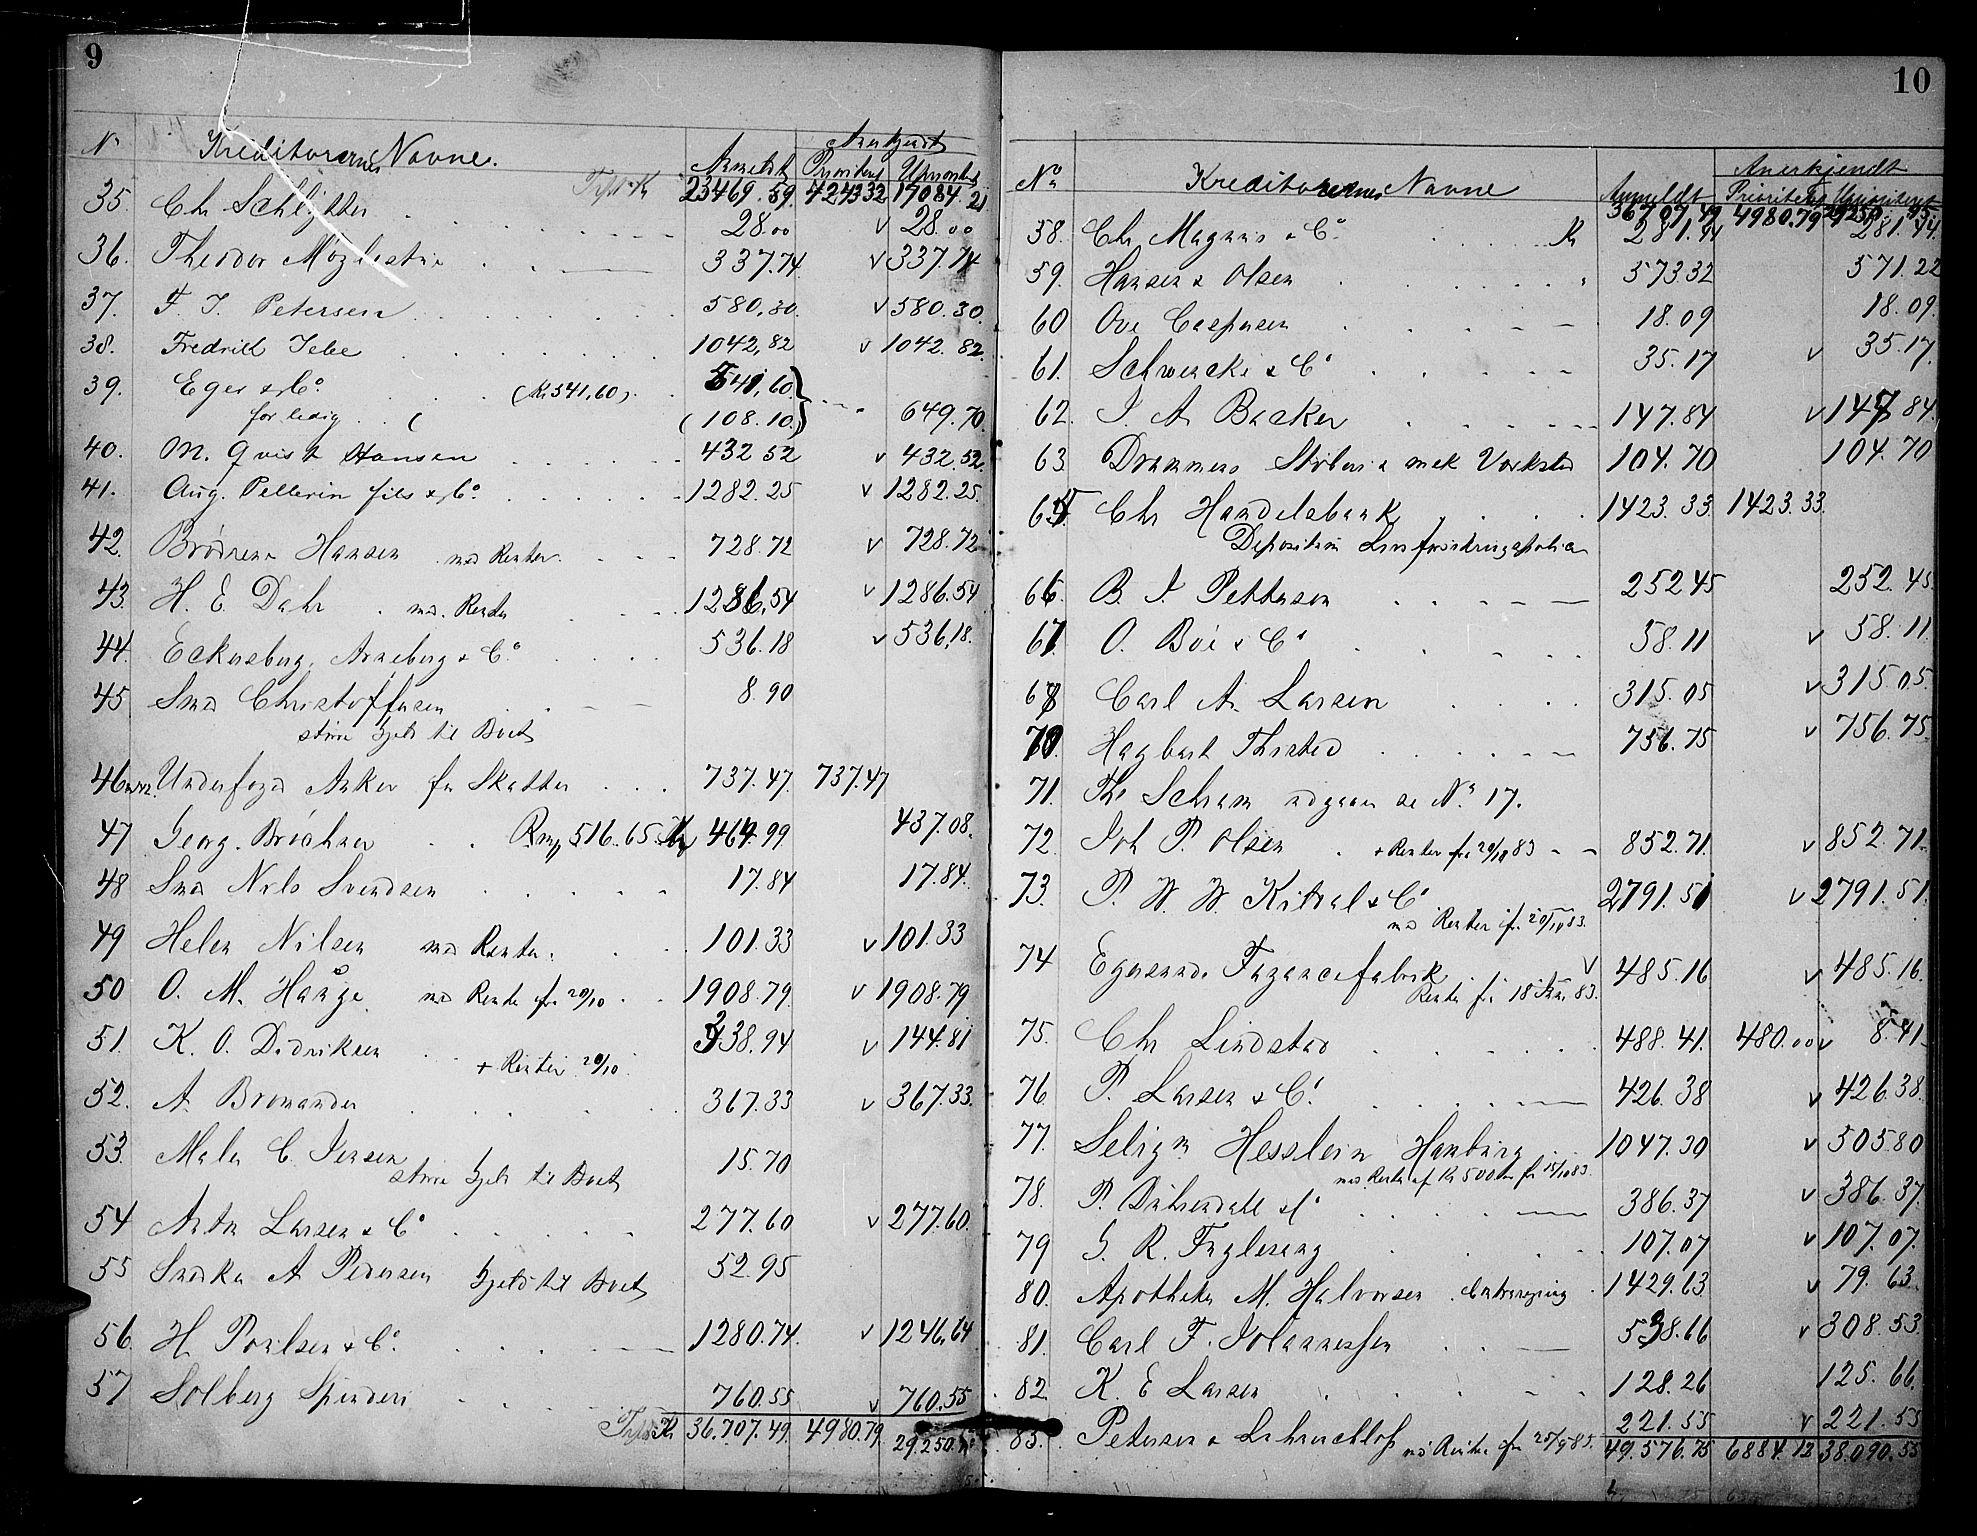 9
No Kreditorernes Navne. Anmeldt Anerkjendt
Prioritet Uprioritet
Trpt Kr 23469.59 4243 32 17084.21
35. Chr Schlytter 28.00 v 28.00
36. Theodor 337.74 v 337.74
37. F. J. Petersen 580,30 v 580.30
38. Fredrik 1042,82 v 1042.82
39. Eger & Co. (Kr 541,60) 541,60
for ledig (108.10) 649.70
40. M. Qvist Hansen 432 52 v 432,52
41. Aug. Pellerin fils & Co. 1282.25 v 1282.25
42. Brødrene Hansen med Renter 728.72 v 728.72
43. H. E. Dahr med Renter 1286,54 v 1286.54
44. Eckersberg, Arneberg & Co 536.18 v 536,18
45 Smed Christoffersen 8.90
større Gjeld til Boet
46 Underfoged Anker for Skatter 737.47 737.47
47 Georg. Rmp 516.65 464.99 437.08
48 Smed Nils Svendsen 17.84 17.84
49 Helen Nilsen med Renter. 101.33 v 101.33
50 O. M. Hauge med Renter fra 20/10 1908.79 v 1908.79
51. K. O. Didriksen + Renter 20/10 338.94 v 144.81
52. A. Bromander 367.33 v 367.33
53. Maler C. Jensen 15.70
større Gjeld til Boet
54 Anton Larsen & Co 277.60 v 277.60
55 Snedker A Pedersen Gjeld til Boet 52.95
56. H. Poulsen & Co. 1280.74 v 1246,64
57 Solberg Spinderi 760.55 v 760.55
Trpt Kr 36,707.49 4980.79 29.250.
10
No Kreditorernes Navne Anmeldt Anerkjendt
Prioritet Uprioritet
36707,49 4980.79 29250.95
38. Chr Magnus & Co. Kr 281.44 281.44
59. Hansen & Olsen 573 32 571.22
60 Ove Caspersen 18.09 18.09
61. Schwencke & Co 35.17 v 35.17
62. J. A. Backer 147.84 v 147 84
63 Drammens Støberi & mek Værksted 104.70 104.70
65 Chr Handelsbank 1423.33 1423.33
Depositum Livsforsikringspolice
66. B. J. Pettersen 252 45 252.45
67 O. Boe & Co 58.11 v 58.11
68 Carl A. Larsen 315.05 v 315.05
70. Hagbart Thisted 756.75 v 756.75
71. Th. Schram udgaar se No 17.
72. Joh P. Olsen + Renter fra 20/10 83 852.71 v 852.71
73. P. W. W. Kildal & Co 2791.51 v 2791.51
med Renter fr. 20/10 83.
74 Egersunds Fayancefabrik v 485.16 v 485.16
Renter fra 18 83.
75. Chr Lindstad 488.41 480.00 v 8.41
76 P. Larsen & Co. 426.38 v 426.38
77. Seligm Hesslein Hamburg 1047.30 v 505 80
med Renter af Kr 500 fra 15/10 83.
78. P. & Co 386.37 v 386.37
79 G. R. 107.07 v 107.07
80. Apotheker M. Halvorsen 1429.63 v 79.63
81. Carl F. Johannessen 538.66 v 308.53
82. K. E Larsen 128.26 125.66
83. Petersen & med Renter fra 25/9 83. 221.55 v 221.55
49.576.75 6884.12 38.090.55